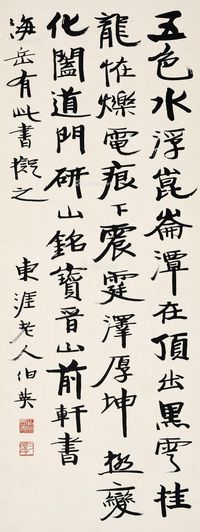 五色水浮崑崙潭在頂出黑雲挂
龍怪爍電痕下震霆澤厚坤極變
化闔道門研山銘寶晉山前軒書
海岳有此書擬之
東涯老人伯英